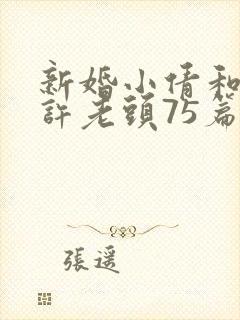 新婚小倩和
許老頭75篇
張遥